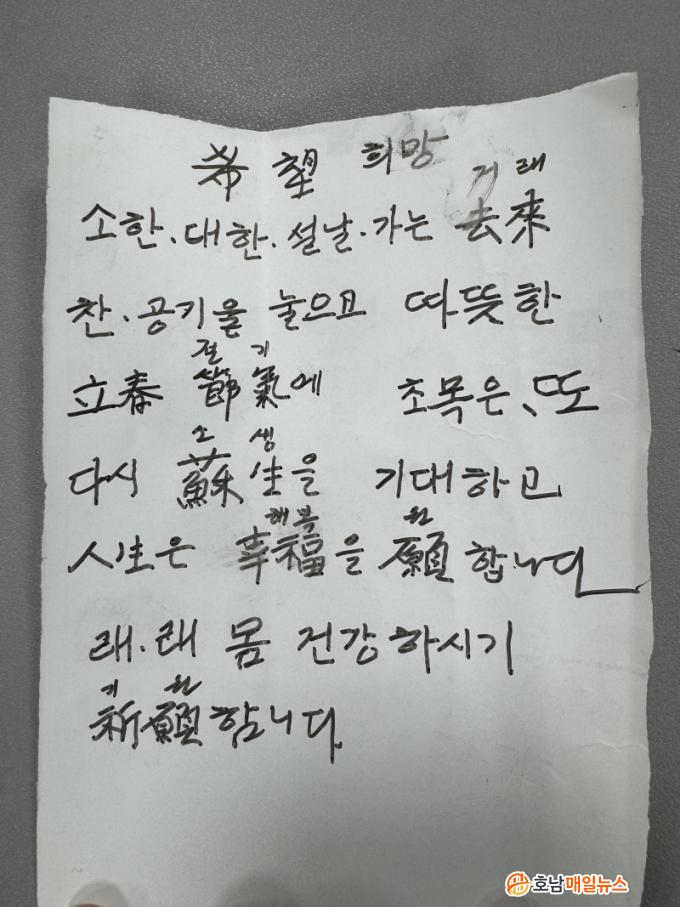 希望 희망
거래
소한.대한.설날.가는 去來
찬.공기울 눌으고 따뜻한
절기
立春 節氣에 초목은、또
소생
다시 蘇生을 기대하고
행복 원
人生은 幸福을 願합니다
래.래 몸 건강하시기
기원
祈願합니다.
호남매일뉴스